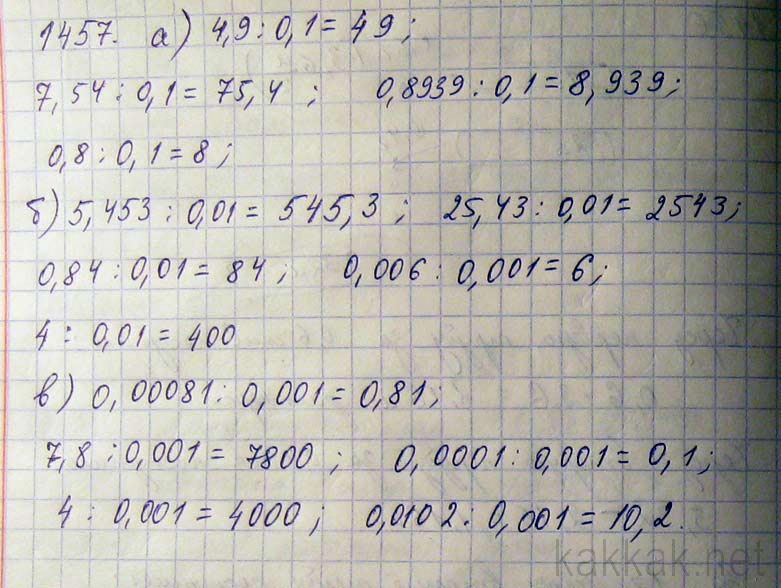 1457. а) 4,9 : 0,1 = 49;
7,54 : 0,1 = 75,4 ; 0,8939 : 0,1 = 8,939;
0,8 : 0,1 = 8 ;
б) 5,453 : 0,01 = 545,3 ; 25,43 : 0,01 = 2543;
0,84 : 0,01 = 84 ; 0,006 : 0,001 = 6;
4 : 0,01 = 400
в) 0,00081 : 0,001 = 0,81;
7,8 : 0,001 = 7800 ; 0,0001 : 0,001 = 0,1;
4 : 0,001 = 4000 ; 0,0102 : 0,001 = 10,2.
kakkak.net